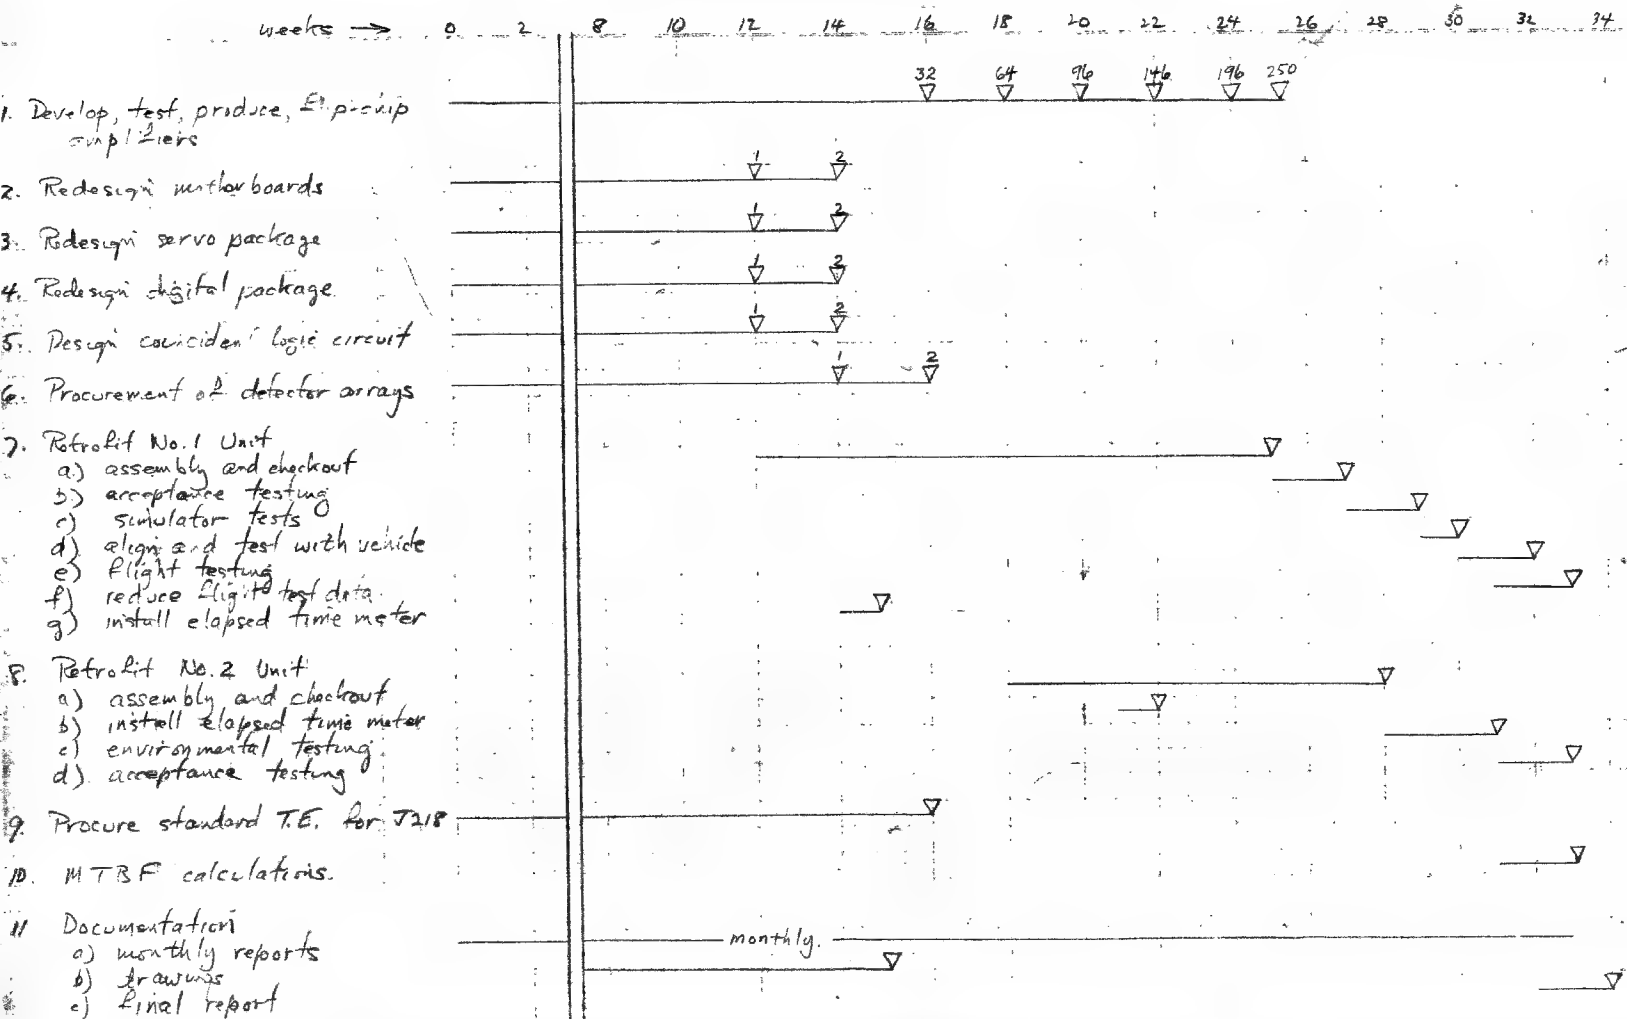 weeks → 0 2 8 10 12 14 16 18 20 22 24 26 28 30 32 34
32 64 96 146 196 250
1. Develop, test, produce, flip-chip
amplifiers
1 2
2. Redesign motherboards
1 2
3. Redesign servo package
1 2
4. Redesign digital package
1 2
5. Design coincident logic circuit
1 2
6. Procurement of detector arrays
7. Retrofit No. 1 Unit
a) assembly and checkout
b) acceptance testing
c) simulator tests
d) align and test with vehicle
e) flight testing
f) reduce flight test data
g) install elapsed time meter
8. Retrofit No. 2 Unit
a) assembly and checkout
b) install elapsed time meter
c) environmental testing
d) acceptance testing
9. Procure standard T.E. for J218
10. MTBF calculations.
11 Documentation
monthly.
a) monthly reports
b) drawings
c) final report